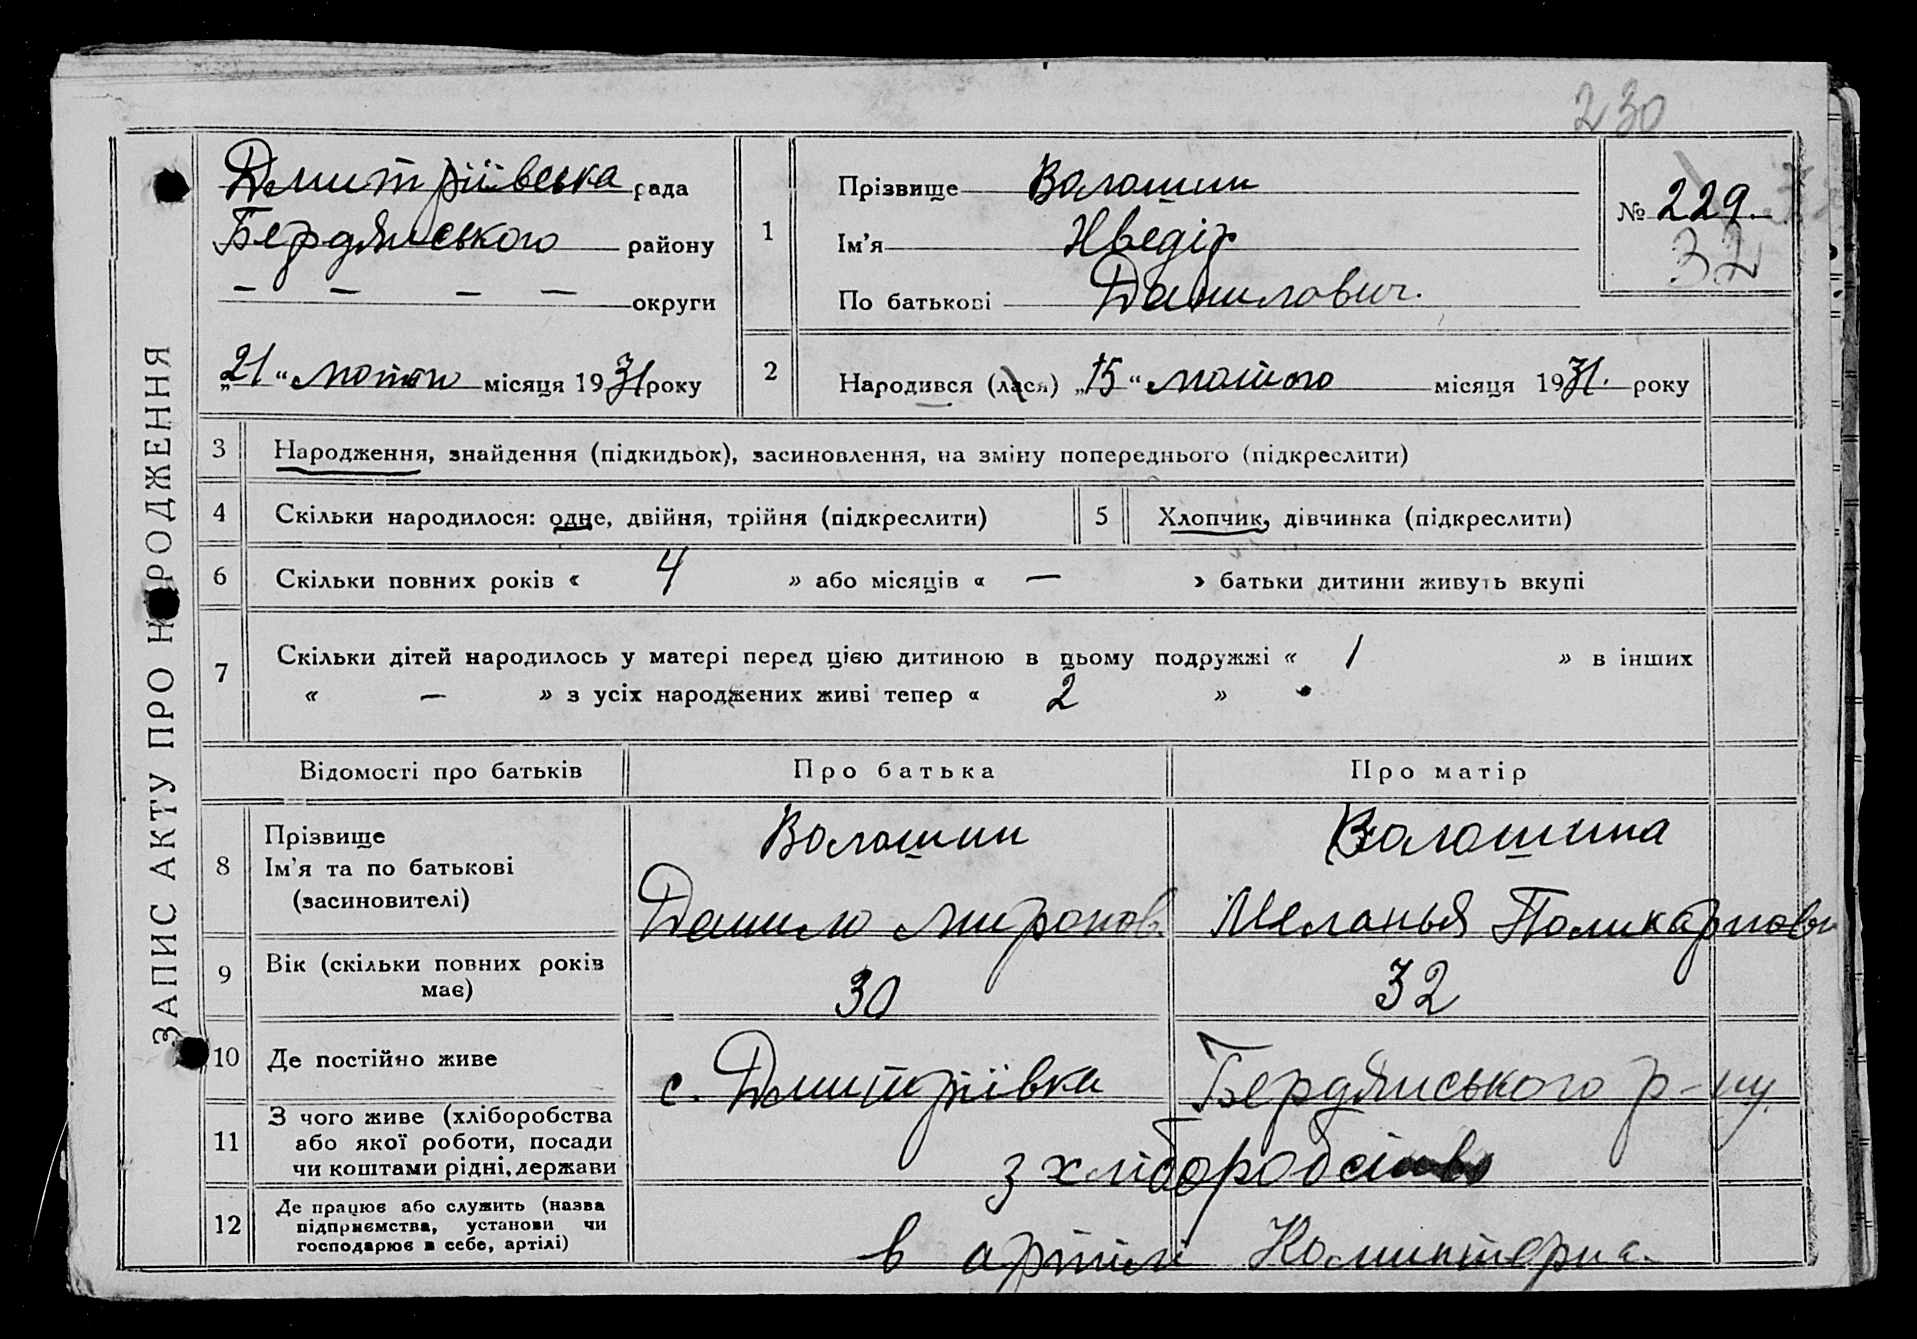 230
Дмитріївська рада
Бердянського району
— — — — округи
„21“ лютого місяця 1931 року
1
Прізвище Волошин
Ім’я
По батькові Данилович.
№ 229.
32
2
Народився (лася) „15“ лютого місяця 1931. року
ЗАПИС АКТУ ПРО НАРОДЖЕННЯ
3 Народження, знайдення (підкидьок), засиновлення, на зміну попереднього (підкреслити)
4 Скільки народилося: одне, двійня, трійня (підкреслити)
5 Хлопчик, дівчинка (підкреслити)
6 Скільки повних років « 4 » або місяців « — » батьки дитини живуть вкупі
7 Скільки дітей народилось у матері перед цією дитиною в цьому подружжі « 1 » в інших
« — » з усіх народжених живі тепер « 2 »
Відомості про батьків Про батька Про матір
8 Прізвище
Ім’я та по батькові
(засиновителі)
Волошин
Данило Миронов.
Волошина
Меланья Поликарповн
9 Вік (скільки повних років
має)
30
32
10 Де постійно живе
с. Дмитріївка Бердянського р-ну.
11 З чого живе (хліборобства
або якої роботи, посади
чи коштами рідні, держави
з хліборобства
12 Де працює або служить (назва
підприємства, установи чи
господарює в себе, артілі)
в артілі Комінтерна.